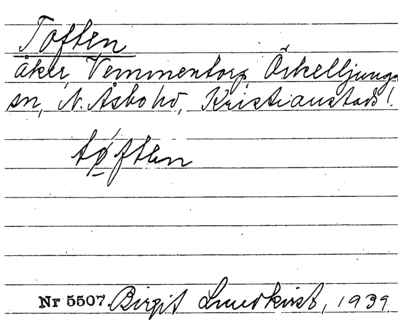 Toften
åker, Vemmentorp, Örkelljunga
sn, N. Åsbo hd, Kristianstads l.
tøften
Nr 5507 Birgit Lundkvist, 1939